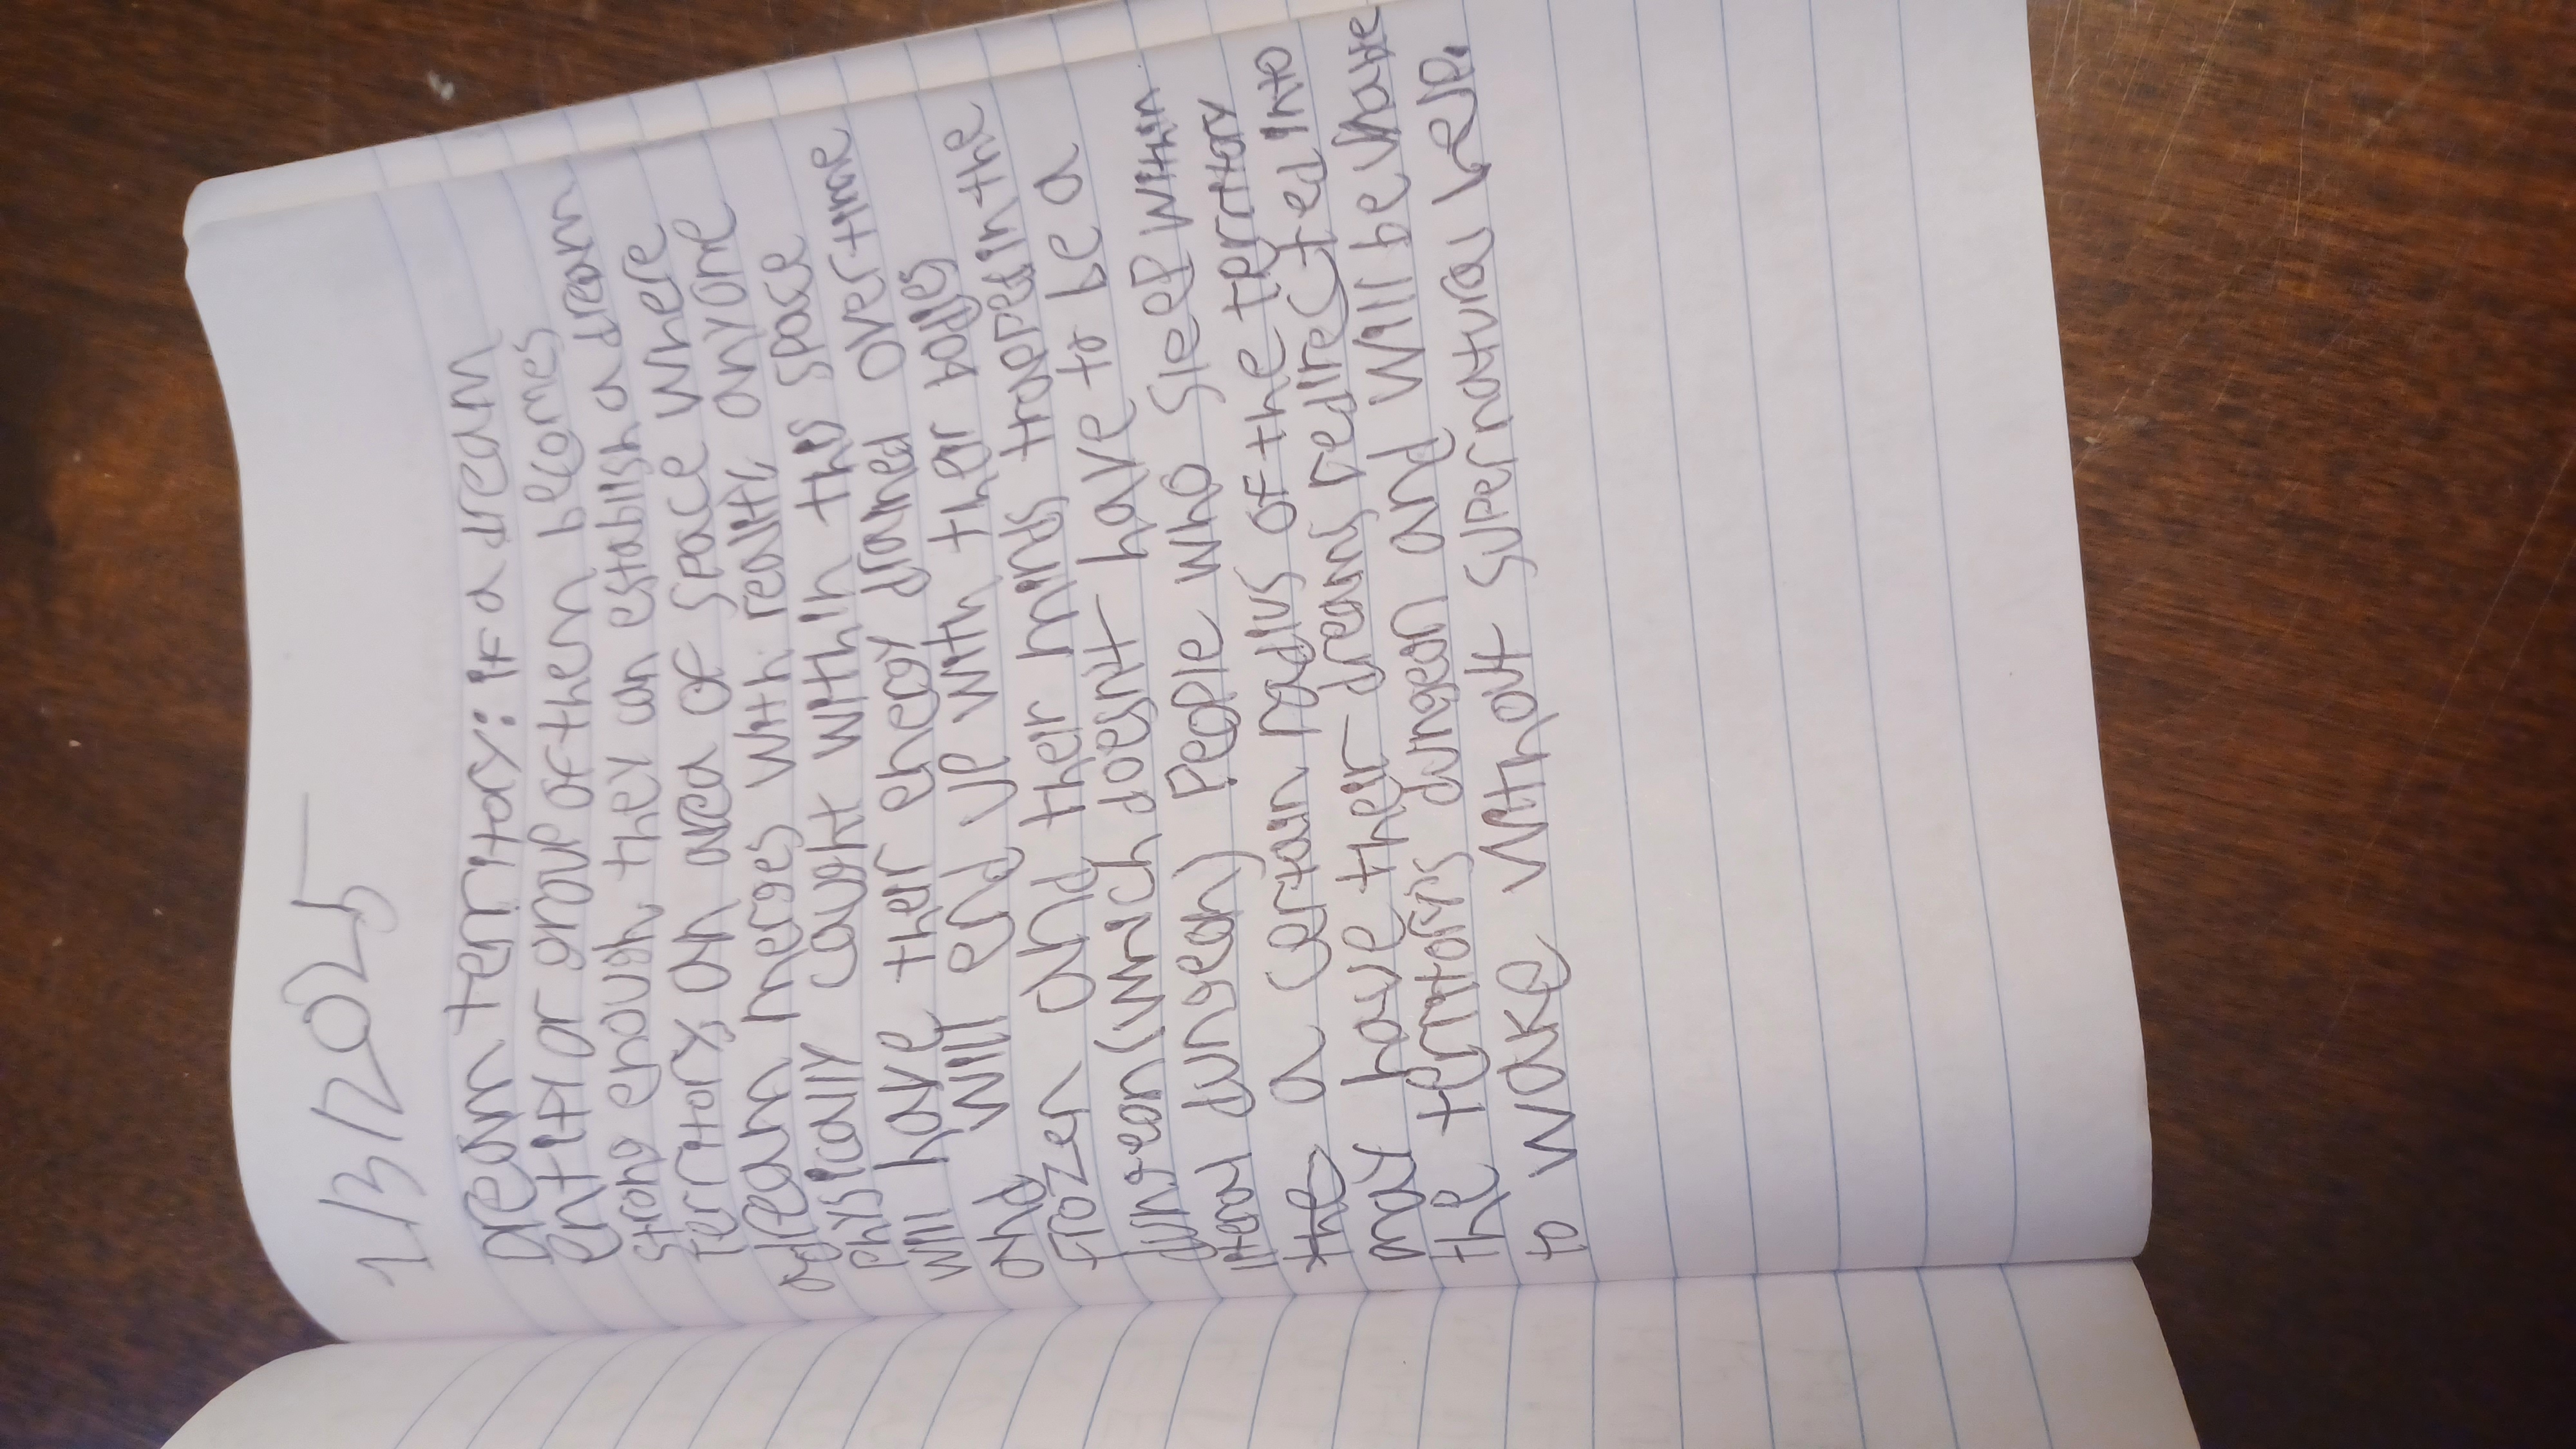 1/3/2025
Dream territory: if a dream
entity or group of them becomes
strong enough, they can establish a dream
territory, an area of space where
a dream merges with reality anyone
physically caught within this space
will have their energy drained overtime
and will end up with their bodies
frozen and their minds trapped in the
dungeon (which doesn't have to be a
literal dungeon) People who sleep within
the a certain radius of the territory
may have their dreams redirected into
the territory's dungeon and will be
to wake without supernatural help.